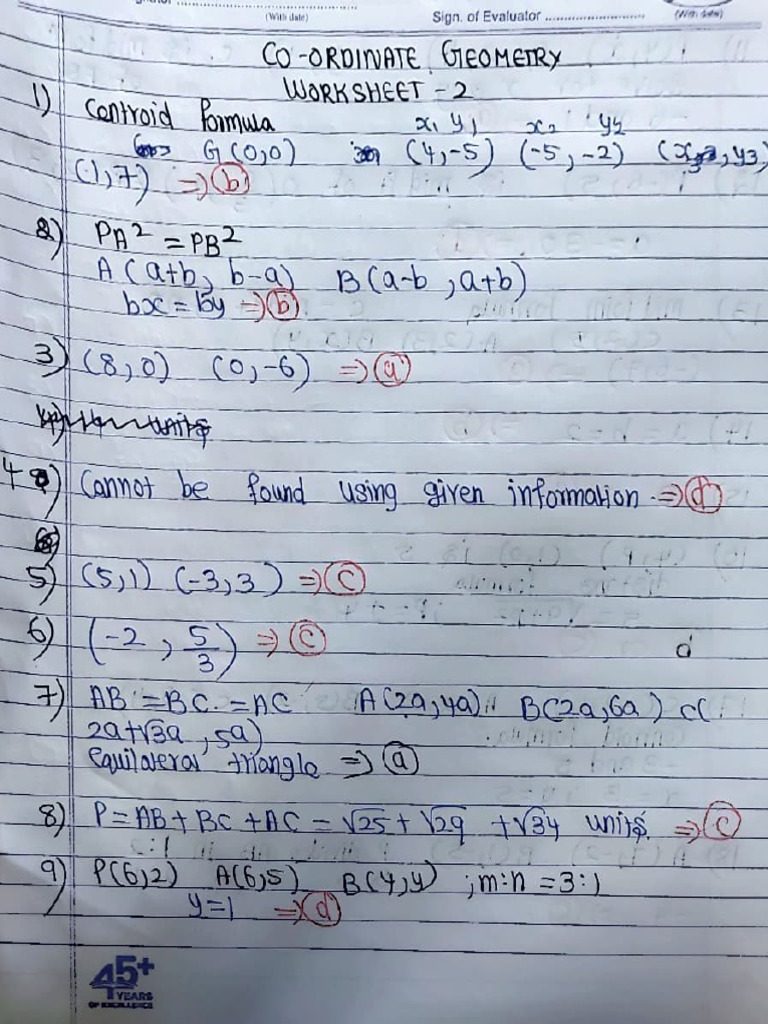 (With date)
Sign. of Evaluator
(With date)
CO-ORDINATE GEOMETRY
WORKSHEET - 2
1) Centroid Formula x1 y1 x2 y2
G(0,0) (4,-5) (-5,-2) (x3, y3)
(1,7) => (b)
2) PA² = PB²
A(a+b, b-a) B(a-b, a+b)
bx = by => (b)
3) (8,0) (0,-6) => (a)
4) Cannot be found using given information => (d)
5) (5,1) (-3,3) => (c)
6) (-2, 5/3) => (c) d
7) AB = BC = AC A(2a,4a) B(2a,6a) C(
2a+√3a, 5a)
equilateral triangle => (a)
8) P = AB + BC + AC = √25 + √29 + √34 units. => (c)
9) P(6,2) A(6,5) B(4,y) ; m:n = 3:1
y=1 => (d)
45+
YEARS
OF EXCELLENCE